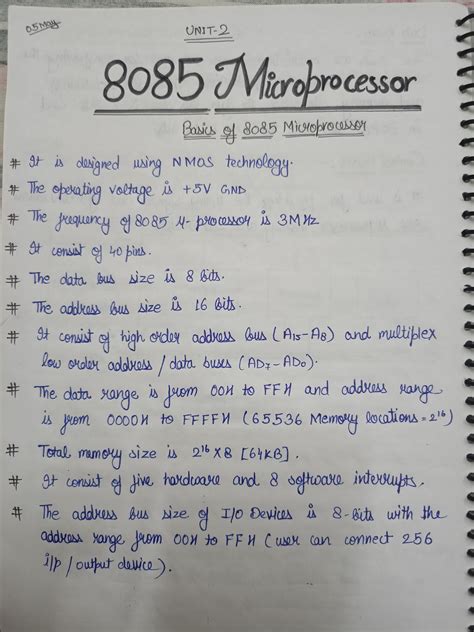 05 May
UNIT-2
8085 Microprocessor
Basics of 8085 Microprocessor
# It is designed using NMOS technology.
# The operating voltage is +5V GND
# The frequency of 8085 μ-processor is 3MHz
# It consist of 40 pins.
# The data bus size is 8 bits.
# The address bus size is 16 bits.
# It consist of high order address bus (A15-A8) and multiplex
low order address / data buses (AD7-AD0).
# The data range is from 00H to FFH and address range
is from 0000H to FFFFH (65536 Memory locations = 2^16)
# Total memory size is 2^16 x 8 [64KB].
# It consist of five hardware and 8 software interrupts.
# The address bus size of I/O Devices is 8-bits with the
address range from 00H to FFH (user can connect 256
i/p / output device).